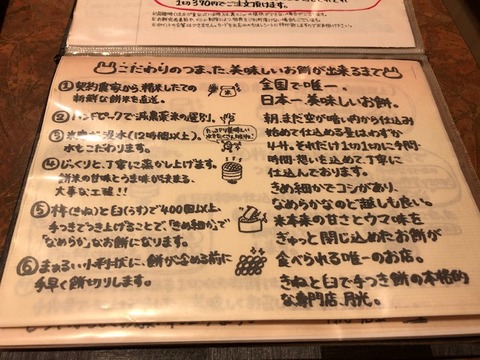 1切390円でご注文頂けます。
こだわりのつまった、美味しいお餅が出来るまで
①契約農家から精米したての
新鮮な餅米を直送。
②ハンドピックで
水もこだわります。
④じっくりと、丁寧に蒸かし上げます。
餅米の甘味とうま味が決まる、
大事な工程!!
⑤杵(きね)と臼(うす)で400回以上、
手つきでつき上げることで、「きめ細か」で
「なめらか」なお餅になります。
⑥まぁるい小判状に、餅が冷める前に
手早く餅切りします。
全国で唯一。
日本一美味しいお餅。
朝、まだ空が暗い内から仕込み
始めて仕込める量はわずか
4升。それだけ1切1切に手間・
時間・想いを込めて、丁寧に
仕込んでおります。
きめ細かでコシがあり、
なめらかなので喉越しも良い。
米本来の甘さとウマ味を
ぎゅっと閉じ込めたお餅が
食べられる唯一のお店。
きねと臼で手つき餅の本格的
な専門店、月光。